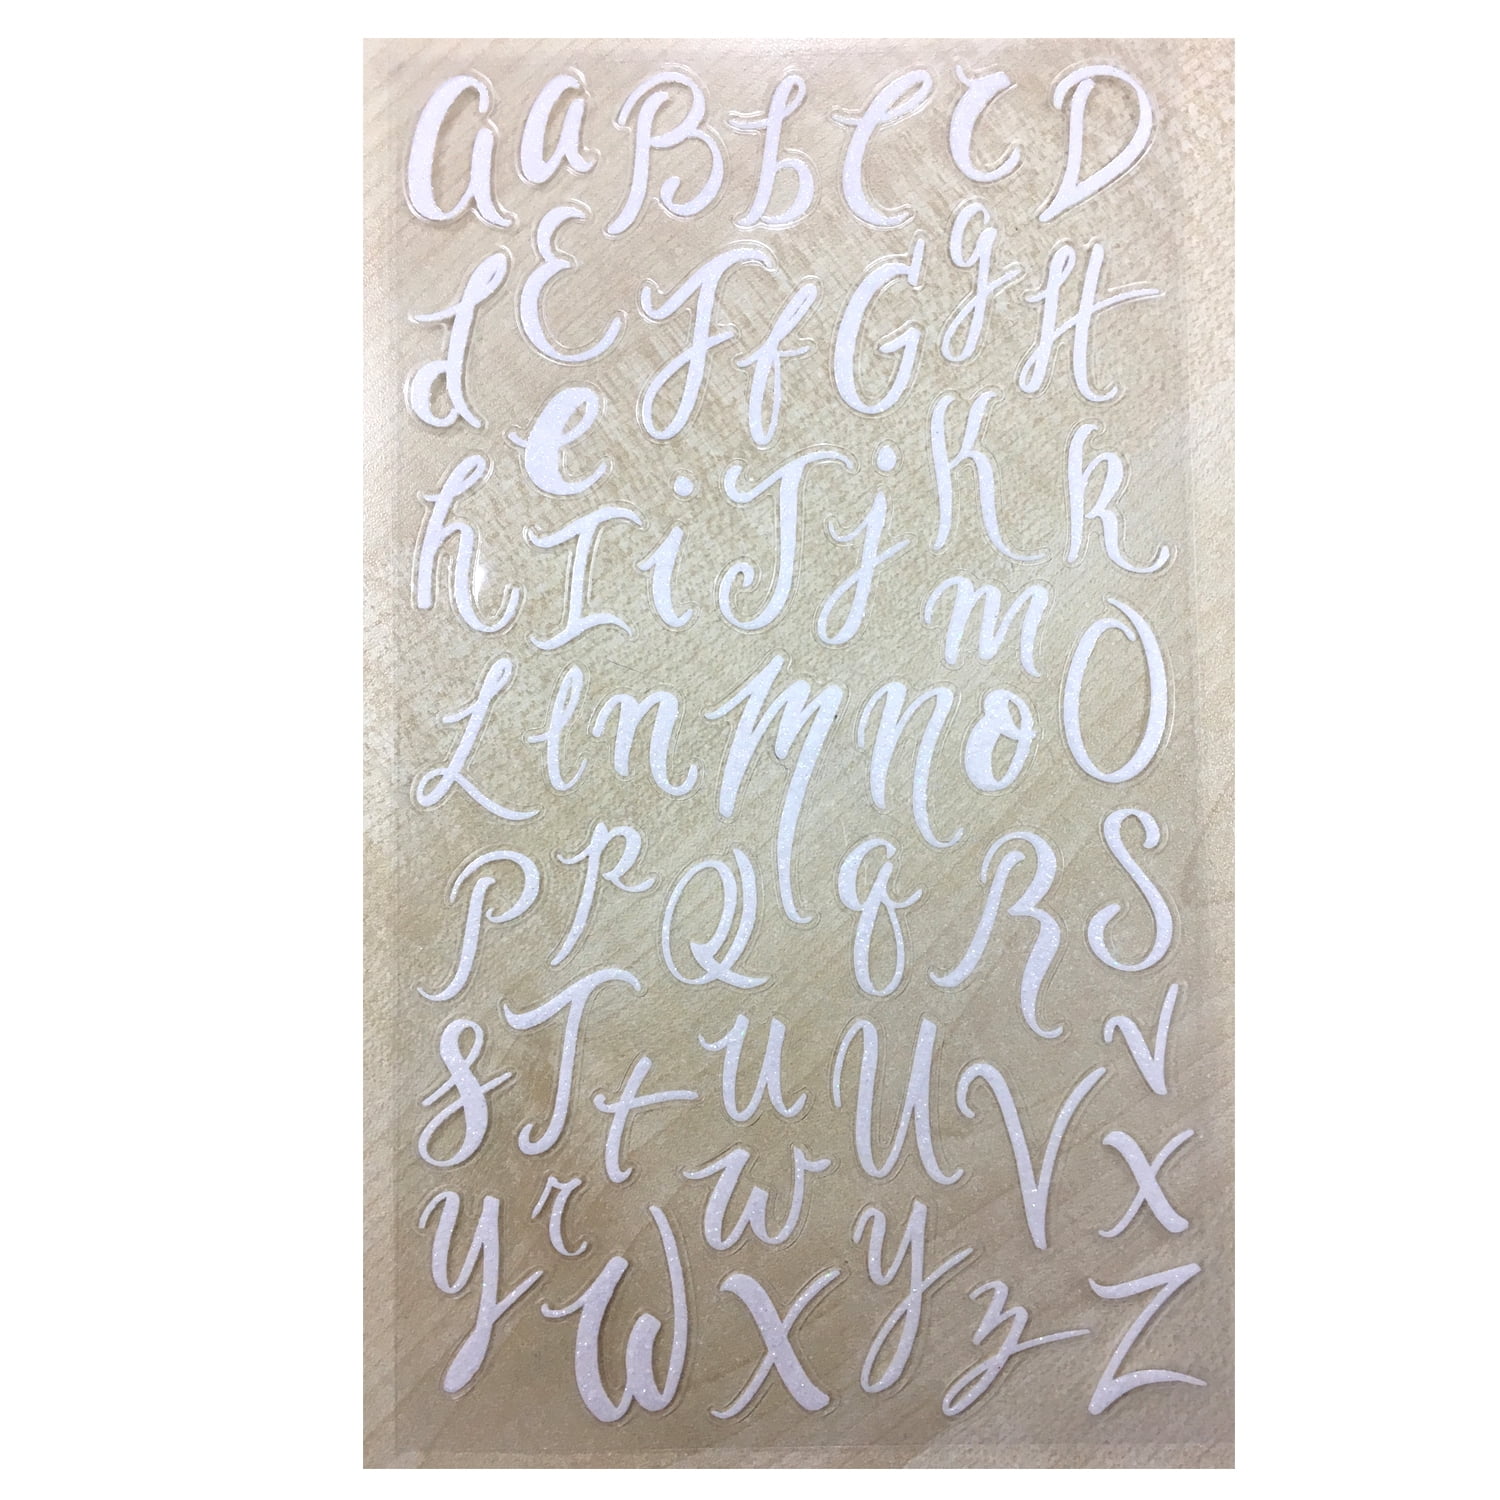 A a B b C c D
d E F f G g H
e
h I i J j K k
L l n M N m o O
P p Q q R S
s T t u U V v
Y r W w X y z x Z